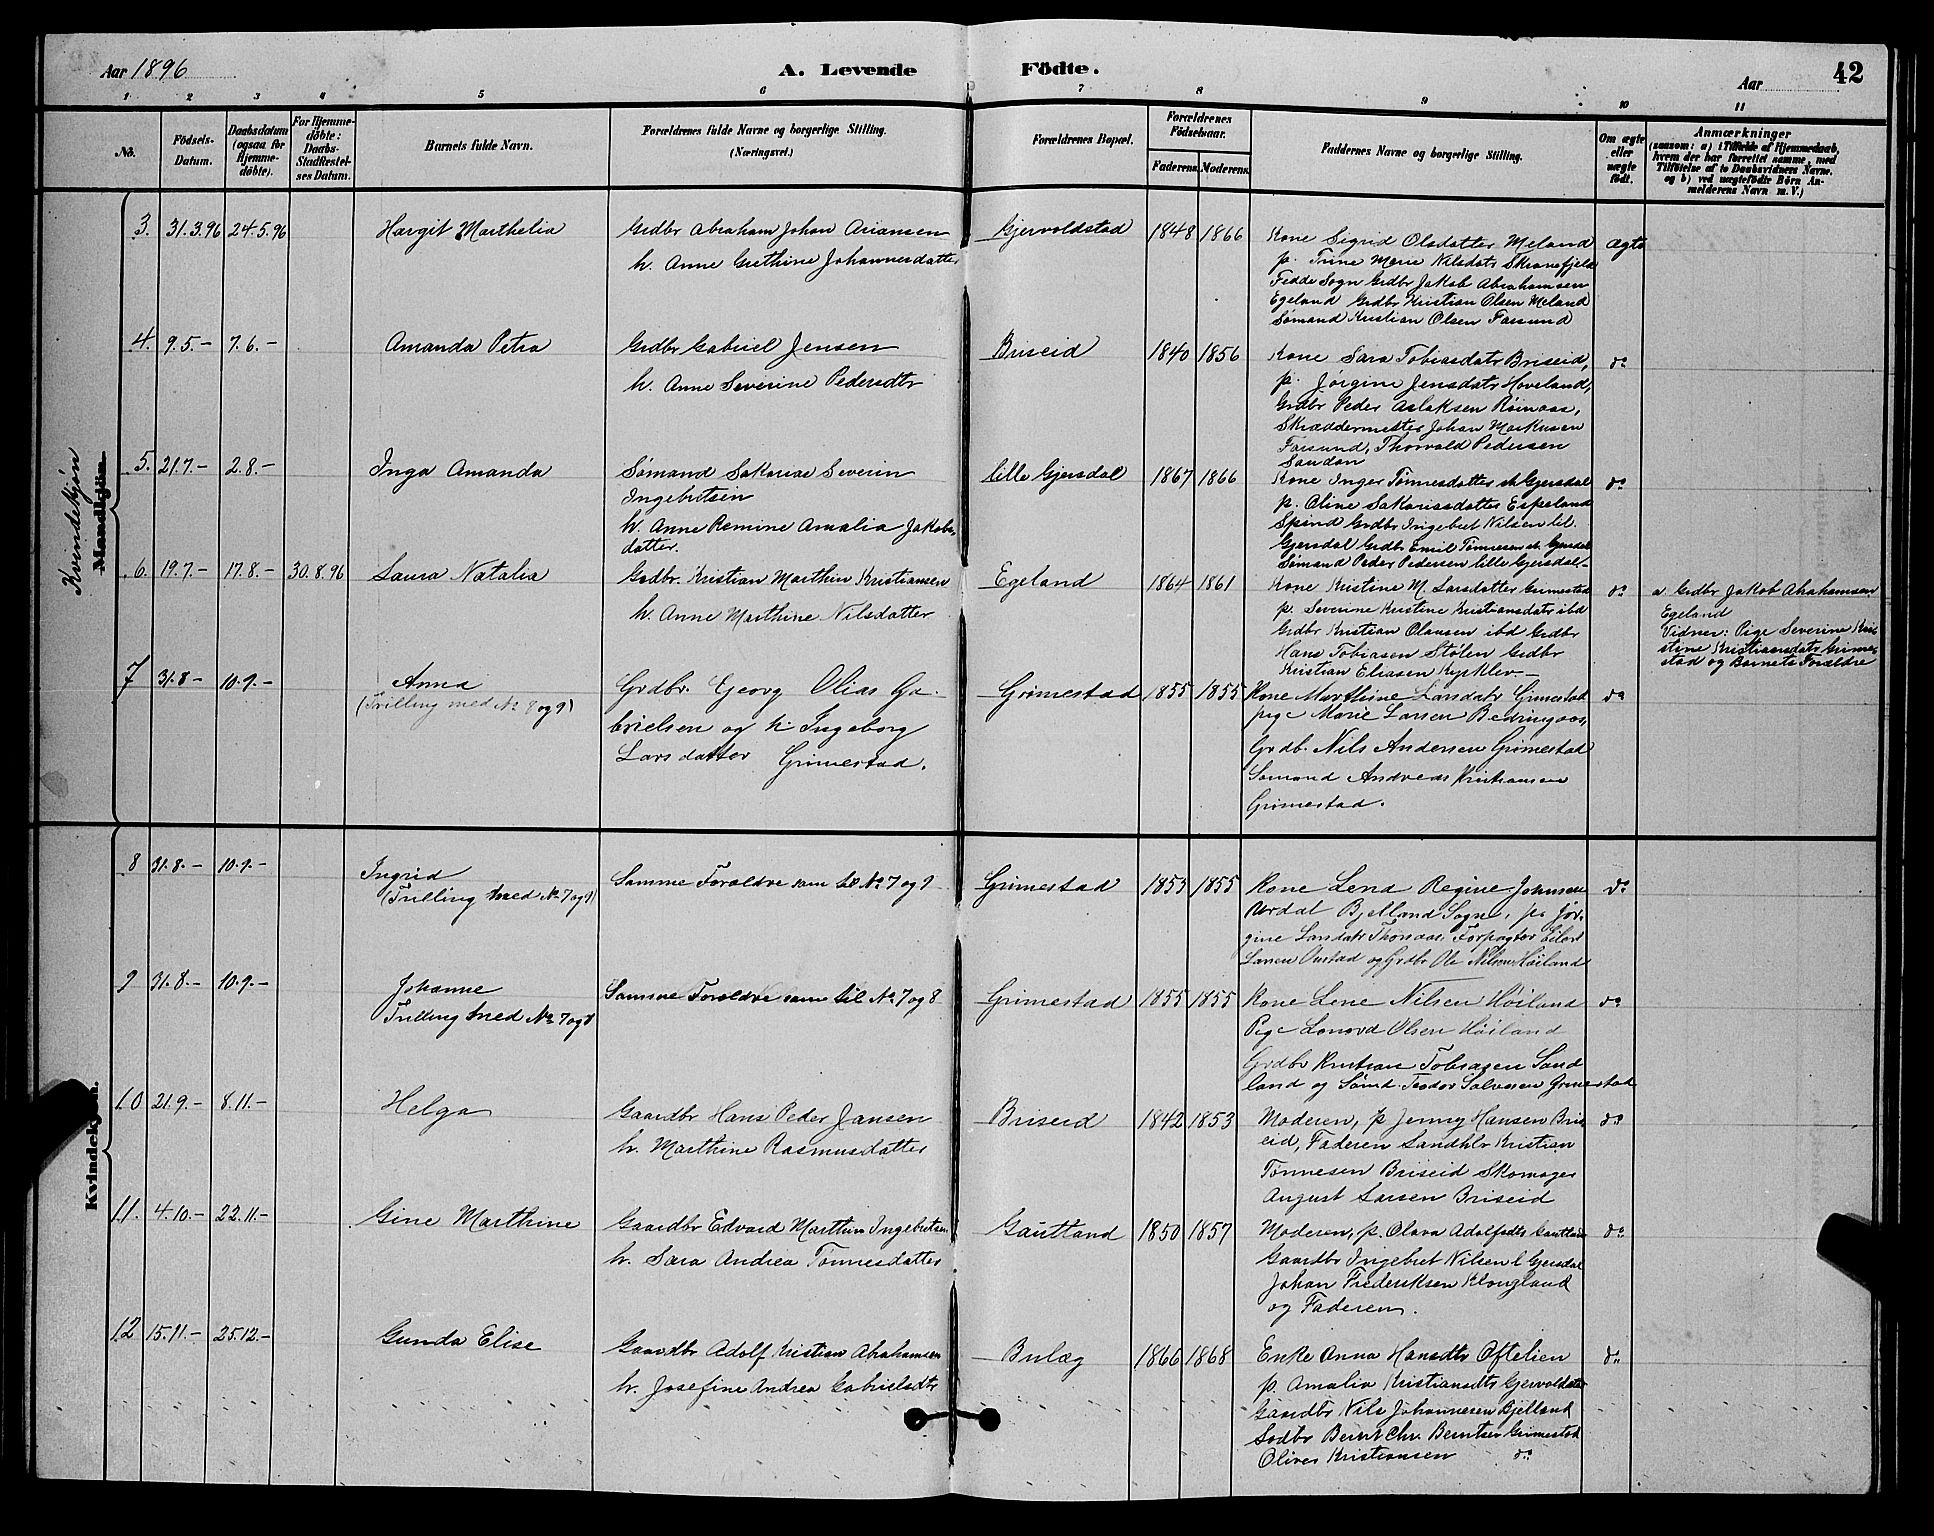 Aar 1896
A. Levende Födte.
Aar
42
1 2 3 4 5 6 7 8 9 10 11
No.
Födsels-Datum.
Daabsdatum (ogsaa for Hjemme-döbte).
For Hjemme-döbte: Daabs-Stadfæstel-ses Datum.
Barnets fulde Navn.
Forældrenes fulde Navne og borgerlige Stilling. (Næringsvei.)
Forældrenes Bopæl.
Forældrenes Födselsaar.
Faderens. Moderens.
Faddernes Navne og borgerlige Stilling.
Om ægte eller uægte födt.
Anmærkninger
(saasom: a) i Tilfælde af Hjemmedaab,
hvem der har forrettet samme, med
Tilföielse af to Daabsvidners Navne.
og b) ved uægtefödte Börn An-
melderens Navn m. V.)
Kvindekjøn
Mandkjön
3. 31.3.96 24.5.96
Hargit Marthelia
Grdbr Abraham Johan Ariansen
h. Anne Grethine Johannesdatter
Gjervoldstad 1848 1866
Kone Sigrid Olsdatter Meland
p. Trine Marie Nilsdatr Skranefjeld
Fedde Sogn Grdbr Jakob Abrahamsen
Egeland Grdbr Kristian Olsen Meland
Sømand Kristian Olsen Farsund
ægte
4. 9.5.- 7.6.-
Amanda Petra
Grdbr Gabriel Jensen
h. Anne Severine Pedersdtr
Briseid 1840 1856
Kone Sara Tobiasdatr Briseid,
p. Jørgine Jensdatr Hoveland,
Grdbr Peder Aslaksen Røinaas,
Skræddermester Johan Markusen
Farsund, Thorvald Pedersen
Sandan
do
5. 21.7.- 2.8.-
Inga Amanda
Sømand Sakarias Severin
Ingebretsen
h. Anne Remine Amalia Jakobs
datter.
lille Gjersdal 1867 1866
Kone Inger Tønnesdatter st. Gjersdal
p. Oline Sakariasdatter Espeland
Spind Grdbr Ingebret Nilsen lil.
Gjersdal Grdbr Emil Tønnesen st. Gjersdal
Sømand Peder Pedersen lille Gjersdal-
do
6. 19.7.- 17.8.- 30.8.96
Laura Natalia
Grdbr. Kristian Marthin Kristiansen
h. Anne Marthine Nilsdatter
Egeland 1864 1861
Kone Kristine M. Larsdatter Grimestad
p. Severine Kristine Kristiansdatr ibd
Grdbr Kristian Olausen ibd Grdbr
Hans Tobiasen Stølen Grdbr
Kristian Eliasen
do
a. Grdbr Jakob Abrahamsen
Egeland
Vidner: Pige Severine Kri-
stine Kristiansdatr Grime-
stad og Barnets Forældre
7 31.8- 10.9.-
Anna
(Trilling med No 8 og 9)
Grdbr. Georg Olias Ga-
brielsen og h. Ingeborg
Larsdatter Grimestad.
Grimestad 1855 1855
Kone Marthine Larsdatr Grimestad
pige Marie Larsen
Grdb. Nils Andersen Grimestad
Sømand Andreas Kristiansen
Grimestad.
do
Kvindekjön.
8 31.8.- 10.9.-
Ingrid
(Trilling med No 7 og 9)
Samme Forældre som til No 7 og 9
Grimestad 1855 1855
Kone Lena Regine Johnsen
Urdal Bjelland Sogn, p. Jør-
gine Larsdatr Forpagter Eilert
Larsen og Grdbr Ole Nilsen Høiland
do
9 31.8- 10.9.-
Johanne
Trilling med No 7 og 8
Samme Forældre som til No 7 og 8
Grimestad 1855 1855
Kone Lene Nilsen Høiland
Pige Olsen Høiland
Grdbr Kristian Tobiasen Sand
land og Sømd. Teodor Salvesen Grimestad
do
10 21.9.- 8.11.-
Helga
Gaardbr Hans Peder Jansen
h. Marthine Rasmusdatter
Briseid 1842 1853
Moderen, p Jenny Hansen Bris
eid, Faderen Kristian
Tønnesen Briseid Skomager
August Larsen Briseid
do
11. 4.10.- 22.11.-
Gine Marthine
Gaardbr Edvard Marthin Ingebretsen
h. Sara Andrea Tønnesdatter
Gautland 1850 1857
Moderen, p. Olava Adolfsdtr Gautland
Gaardbr Ingebret Nilsen l Gjersdal
Johan Frederiksen Klougland
og Faderen.
do
12 15.11.- 25.12.-
Gunda Elise
Gaardbr Adolf Kristian Abrahamsen
h. Josefine Andrea Gabrielsdtr
Bulæg 1866 1868
Enke Anna Hansdtr Oftelien
p. Amalia Kristiansdtr Gjervoldstad
Gaardbr Nils Johannesen Bjelland
Sødbr Bernt Chr. Berntsen Grimestad
Oliver Kristiansen do
do